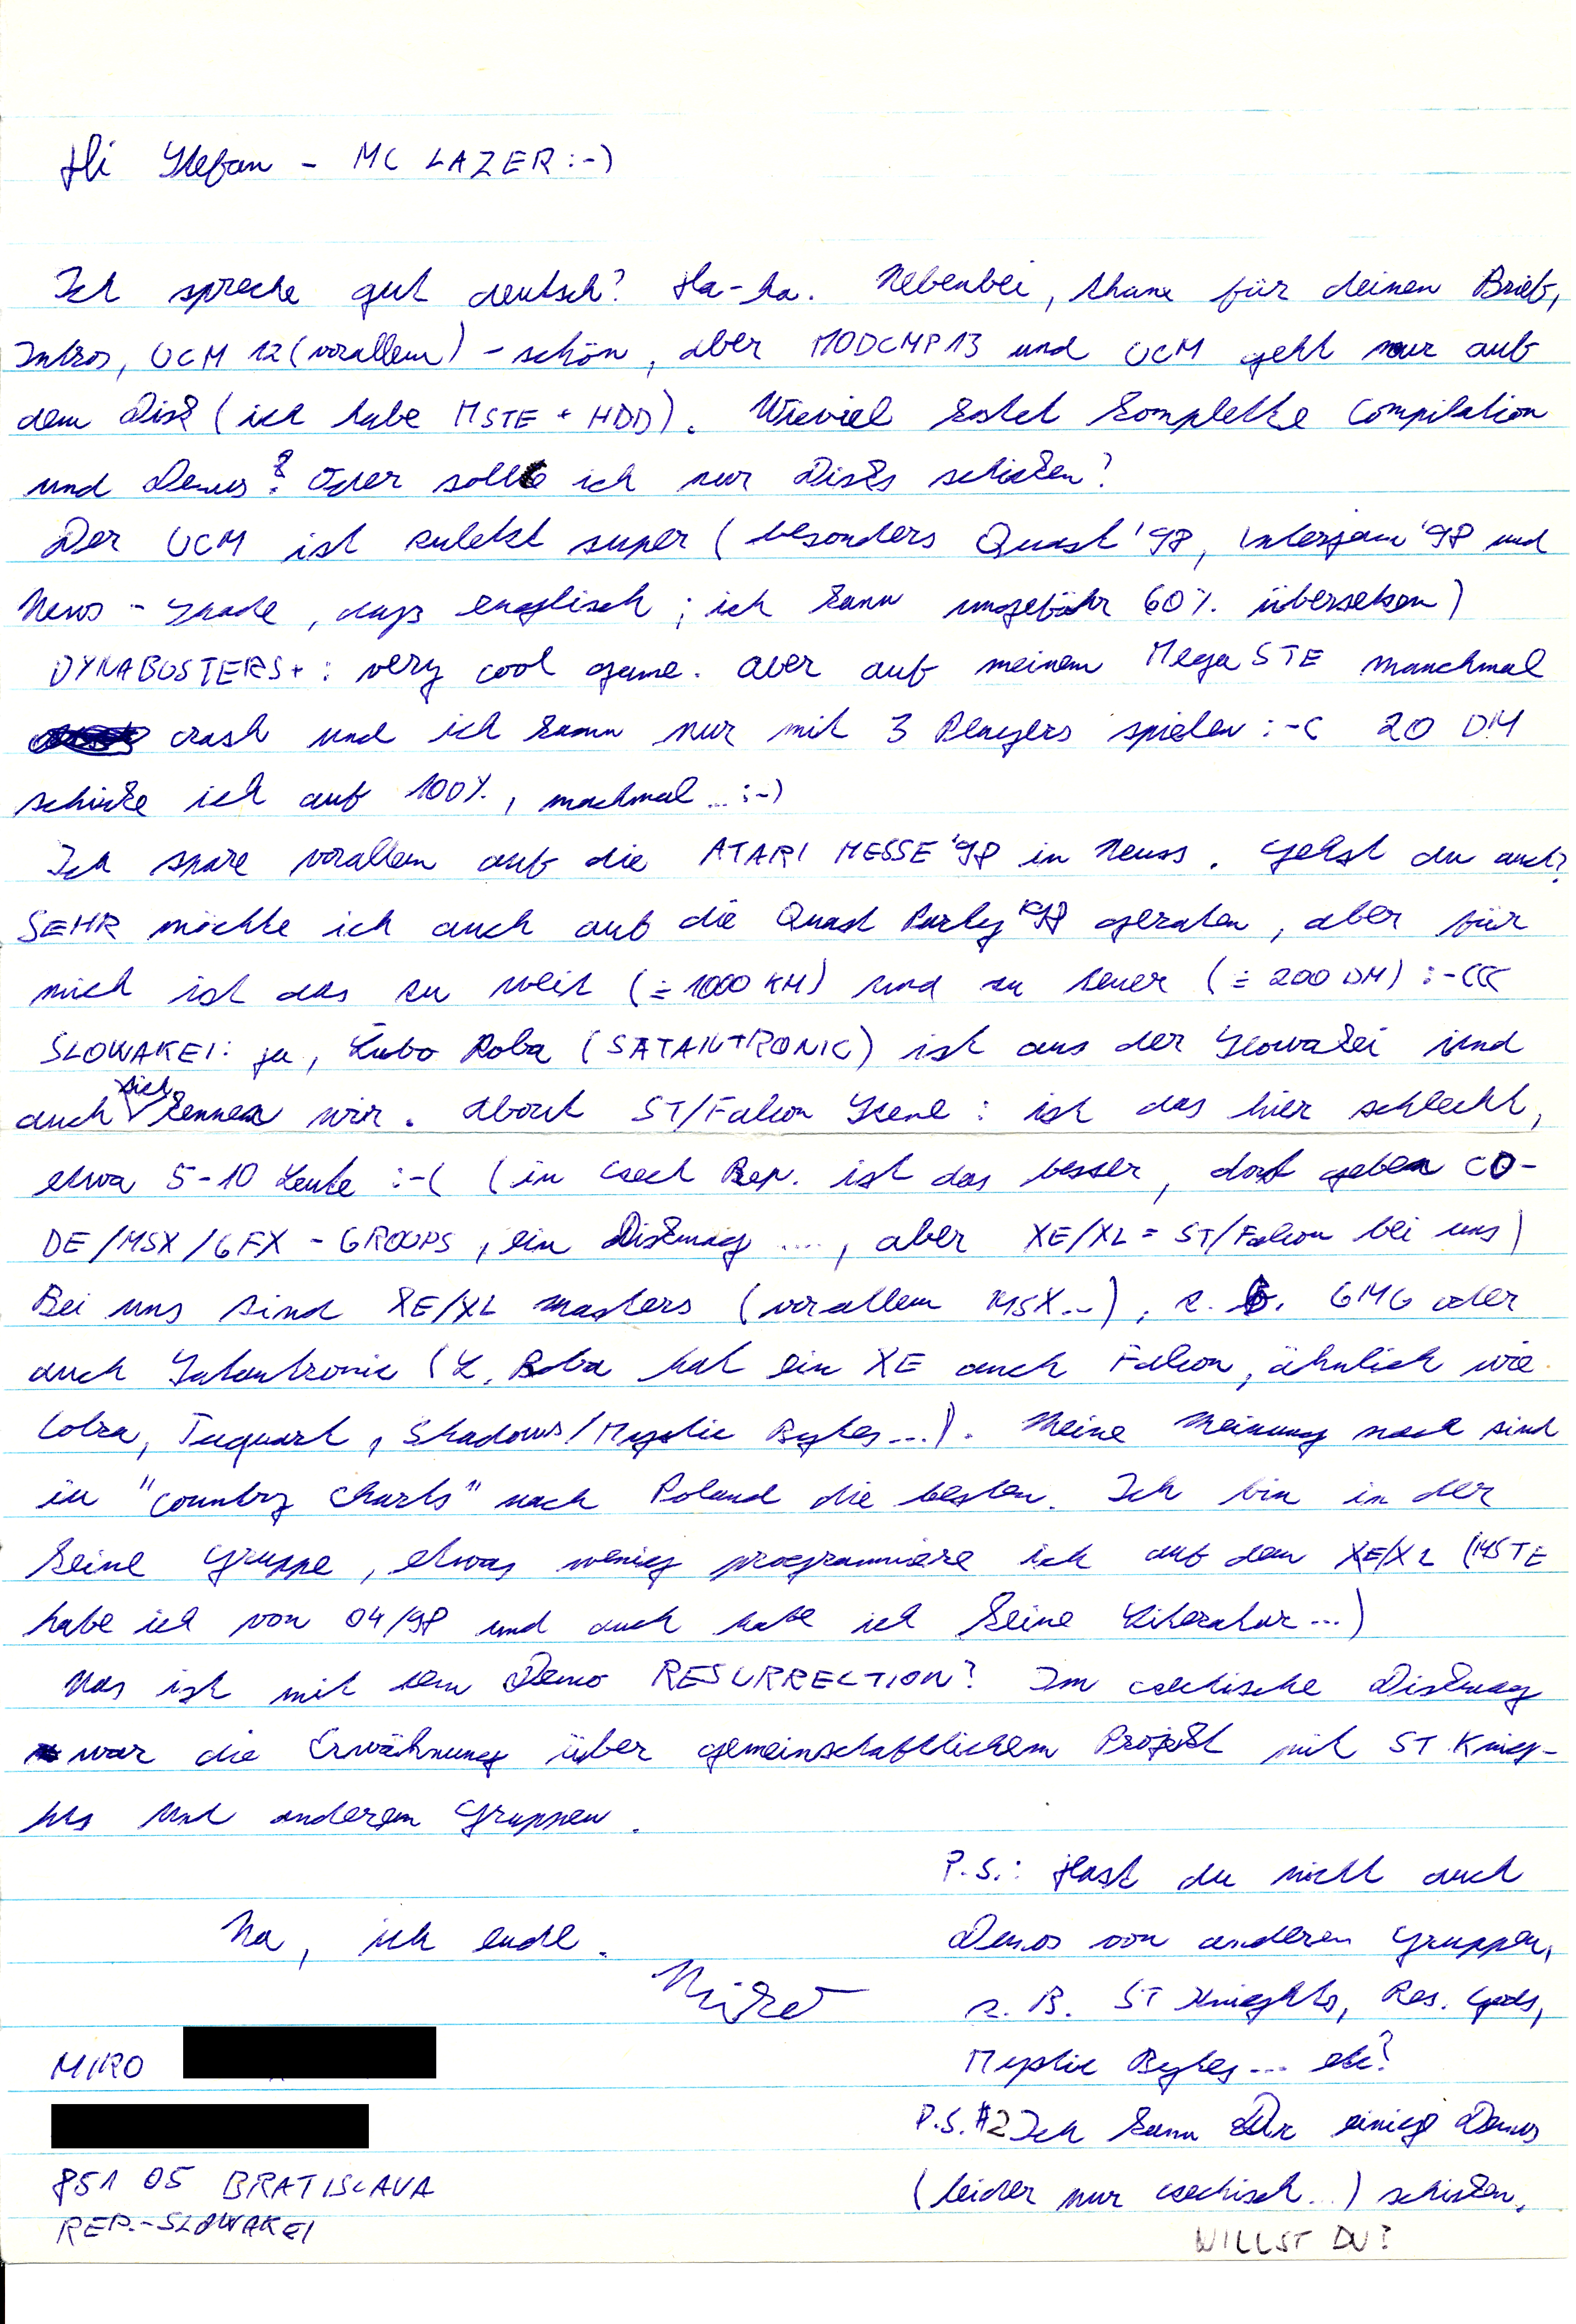 Hi Stefan - MC LAZER :-)
Ich spreche gut deutsch? Ha-ha. Nebenbei, thanx für deinen Brief,
Intros, UCM 12 (vorallem) - schön, aber MODCMP13 und UCM geht nur auf
dem Disk (ich habe MSTE + HDD). Wieviel kostet komplette Compilation
und Demos? Oder sollte ich nur Disks schicken?
Der UCM ist zuletzt super (besonders Quast '98, Interjam '98 und
News - Schade, dass englisch; ich kann ungefähr 60% übersetzen)
DYNABUSTERS+: very cool game. aber auf meinem Mega STE manchmal
crash und ich kann nur mit 3 Players spielen :-( 20 DM
schicke ich auf 100%, machmal ... :-)
Ich spare vorallem auf die ATARI MESSE '98 in Neuss. Gehst du auch?
SEHR möchte ich auch auf die Quast Party '98 geraten, aber für
mich ist das zu weit (≐ 1000 KM) und zu teuer (≐ 200 DM) :-(((
SLOWAKEI: ja, Ľubo Roba (SATANTRONIC) ist aus der Slowakei und
auch sich kennen wir. About ST/Falcon Scene: ist das hier schlecht,
etwa 5-10 Leute :-( (in Czech Rep. ist das besser, dort geben CO-
DE/MSX/GFX - GROUPS, ein Diskmag ...., aber XE/XL = ST/Falcon bei uns)
Bei uns sind XE/XL masters (vorallem MSX...), z. B. GMG oder
auch Satantronic (Ľ. Roba hat ein XE auch Falcon, ähnlich wie
Cobra, Tuquart, Shadows/Mystic Bytes ...). Meine Meinung nach sind
in "country charts" nach Poland die besten. Ich bin in der
keine Gruppe, etwas wenig programmiere ich auf dem XE/XL (MSTE
habe ich von 04/98 und auch habe ich keine Literatur ...)
Was ist mit dem Demo RESURRECTION? Im czechische Diskmag
war die Erwähnung über gemeinschaftlichem Projekt mit ST Knig-
hts und anderem Gruppen.
Na, ich ende.
Miro
MIRO
851 05 BRATISLAVA
REP.-SLOWAKEI
P.S.: Hast du nicht auch
Demos von anderen Gruppen,
z. B. ST Knieghts, Res. Gods,
Mystic Bytes ... etc?
P.S. #2 Ich kann Dir einige Demos
(leider nur czechisch ...) schicken,
WILLST DU?